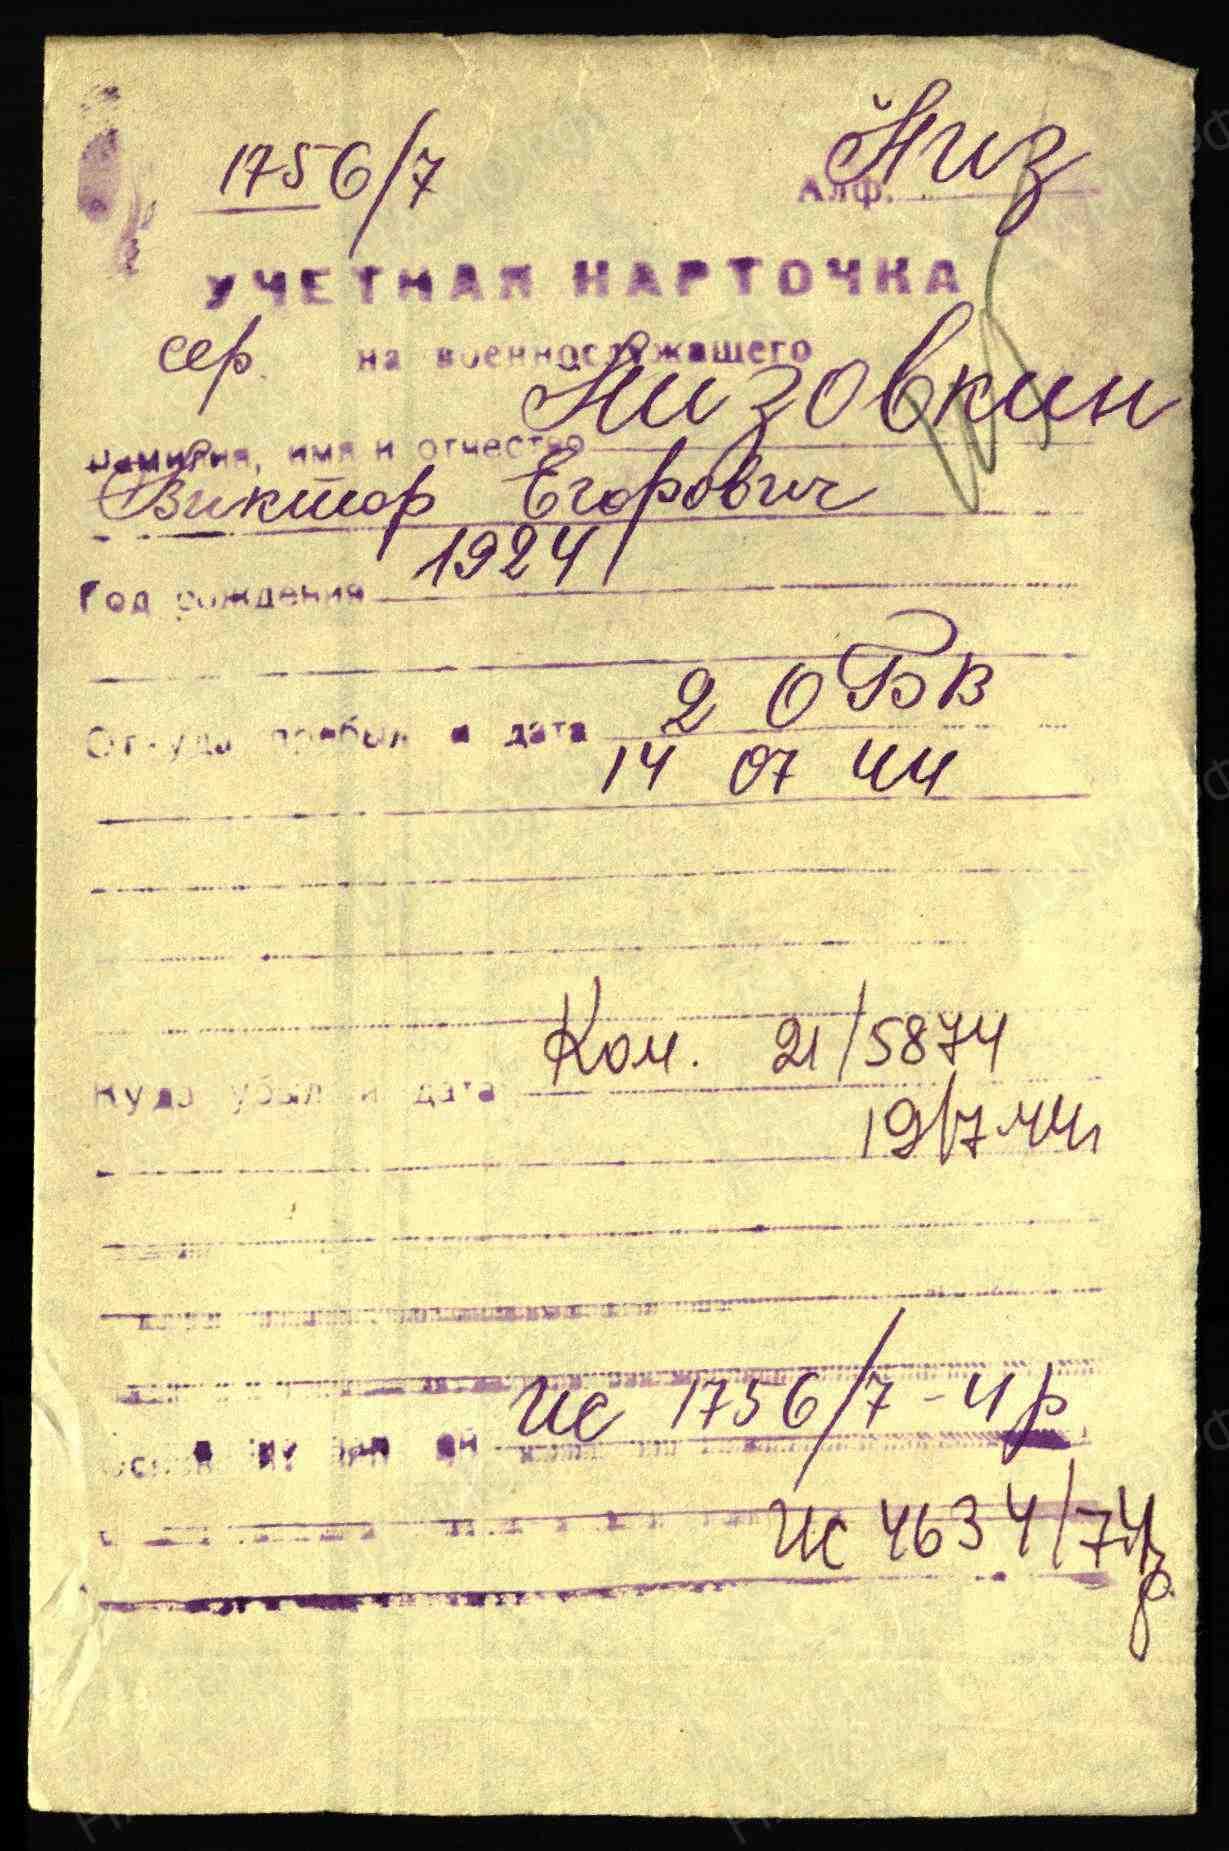 1756/7
Низ
Алф.
УЧЕТНАЯ КАРТОЧКА
сер. на военнослужащего
Низовкин
Фамилия, имя и отчество
Виктор Егорович
1924
Год рождения
2 ОБВ
Откуда прибыл и дата
14 07 44
Ком. 21/5874
Куда убыл и дата
19/7.44
Ис 1756/7-4р
Ис 4634/74